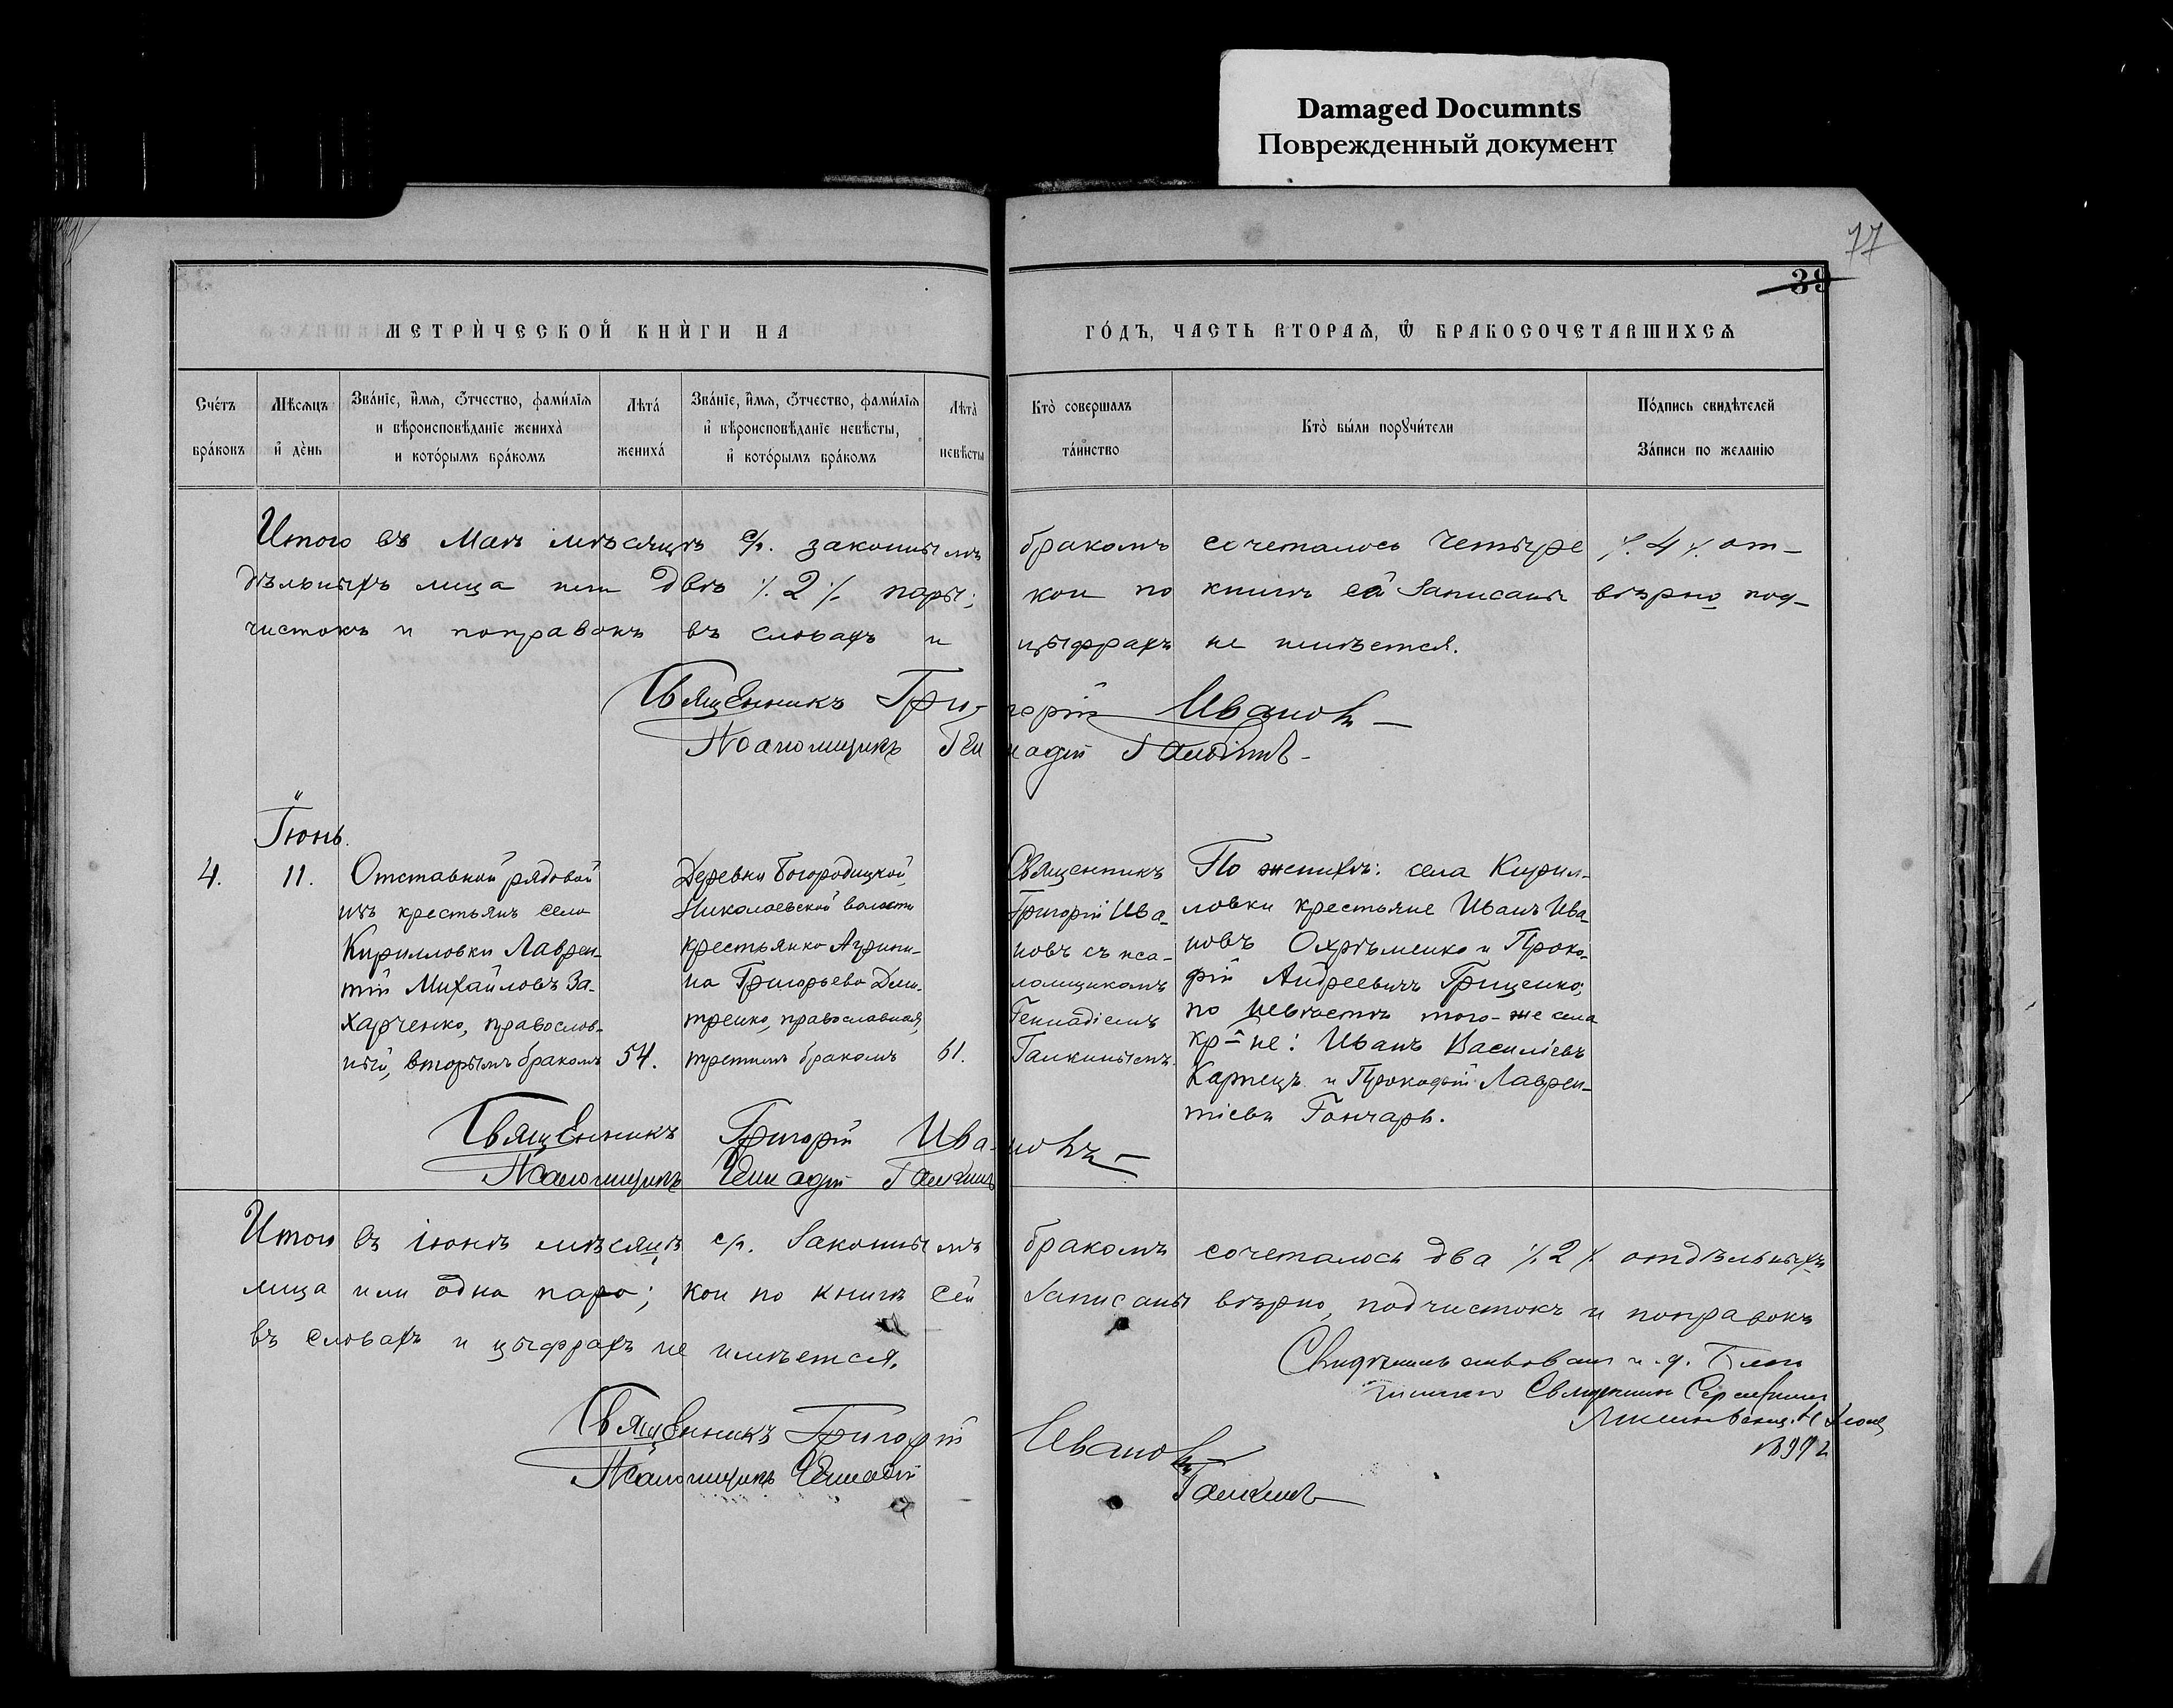 Damaged Documnts
Поврежденный документ
77
39
МЕТРИ́ЧЕСКОЙ КНИ́ГИ НА ГО́ДЪ, ЧАСТЬ ВТОРАѦ, Ѽ БРАКОСОЧЕТАВШИХСѦ
Сче́тъ бра́ковъ
Мѣсѧцъ и́ де́нь
Зва́нїе, и́мѧ, ѻ́тчество, фами́лїѧ и вѣроисповѣ́данїе жениха̀ и кото́рымъ бра́комъ
Лѣта̀ жениха́
Зва́нїе, и́мѧ, ѻ́тчество, фами́лїѧ и́ вѣроисповѣ́данїе невѣ́сты, и́ кото́рымъ бра́комъ
Лѣта̀ невѣ́сты
Кто̀ совершалъ та́инство
Кто̀ бы́ли порꙋчи́тели
По́дпись свидѣ́телей За́писи по желанію
Итого въ Маѣ мѣсяцѣ с/г. законнымъ бракомъ сочеталось четыре ·/.4 ·/. от-
дѣльныхъ лица или двѣ ·/.2 ·/. пары; кои по книгѣ сей записаны вѣрно под-
чистокъ и поправокъ въ словахъ и цыфрахъ не имѣется.
Священникъ Григорій Ивановъ
Псаломщикъ Геннадій Галкинъ
Іюнь.
4.
11.
Отставной рядовой
изъ крестьянъ села
Кирилловки Лаврен-
тій Михайловъ За-
харченко, православ-
ный, вторымъ бракомъ
54.
Деревни Богородицкой,
Николаевской волости
крестьянка Агрипи-
на Григорьева Дми-
тренко, православная,
третимъ бракомъ
61.
Священникъ
Григорій Ива-
новъ съ пса-
ломщикомъ
Геннадіемъ
Галкинымъ.
По женихѣ: села Кирил-
ловки крестьяне Иванъ Ива-
новъ Охрѣменко и Проко-
фій Андреевичъ Грищенко;
по невѣстѣ того-же села
кр-не: Иванъ Василіевъ
Карпецъ и Прокофій Лаврен-
тіевъ Гончаръ.
Священникъ Григорій Ивановъ
Псаломщикъ Геннадій Галкинъ
Итого въ іюнѣ мѣсяцѣ с/г. законнымъ бракомъ сочеталось два ·/.2 ·/. отдѣльныхъ
лица или одна пара; кои по книгѣ сей записаны вѣрно, подчистокъ и поправокъ
въ словахъ и цыфрахъ не имѣется.
Священникъ Григорій Ивановъ
Псаломщикъ Геннадій Галкинъ
и. д. Благо
Священникъ